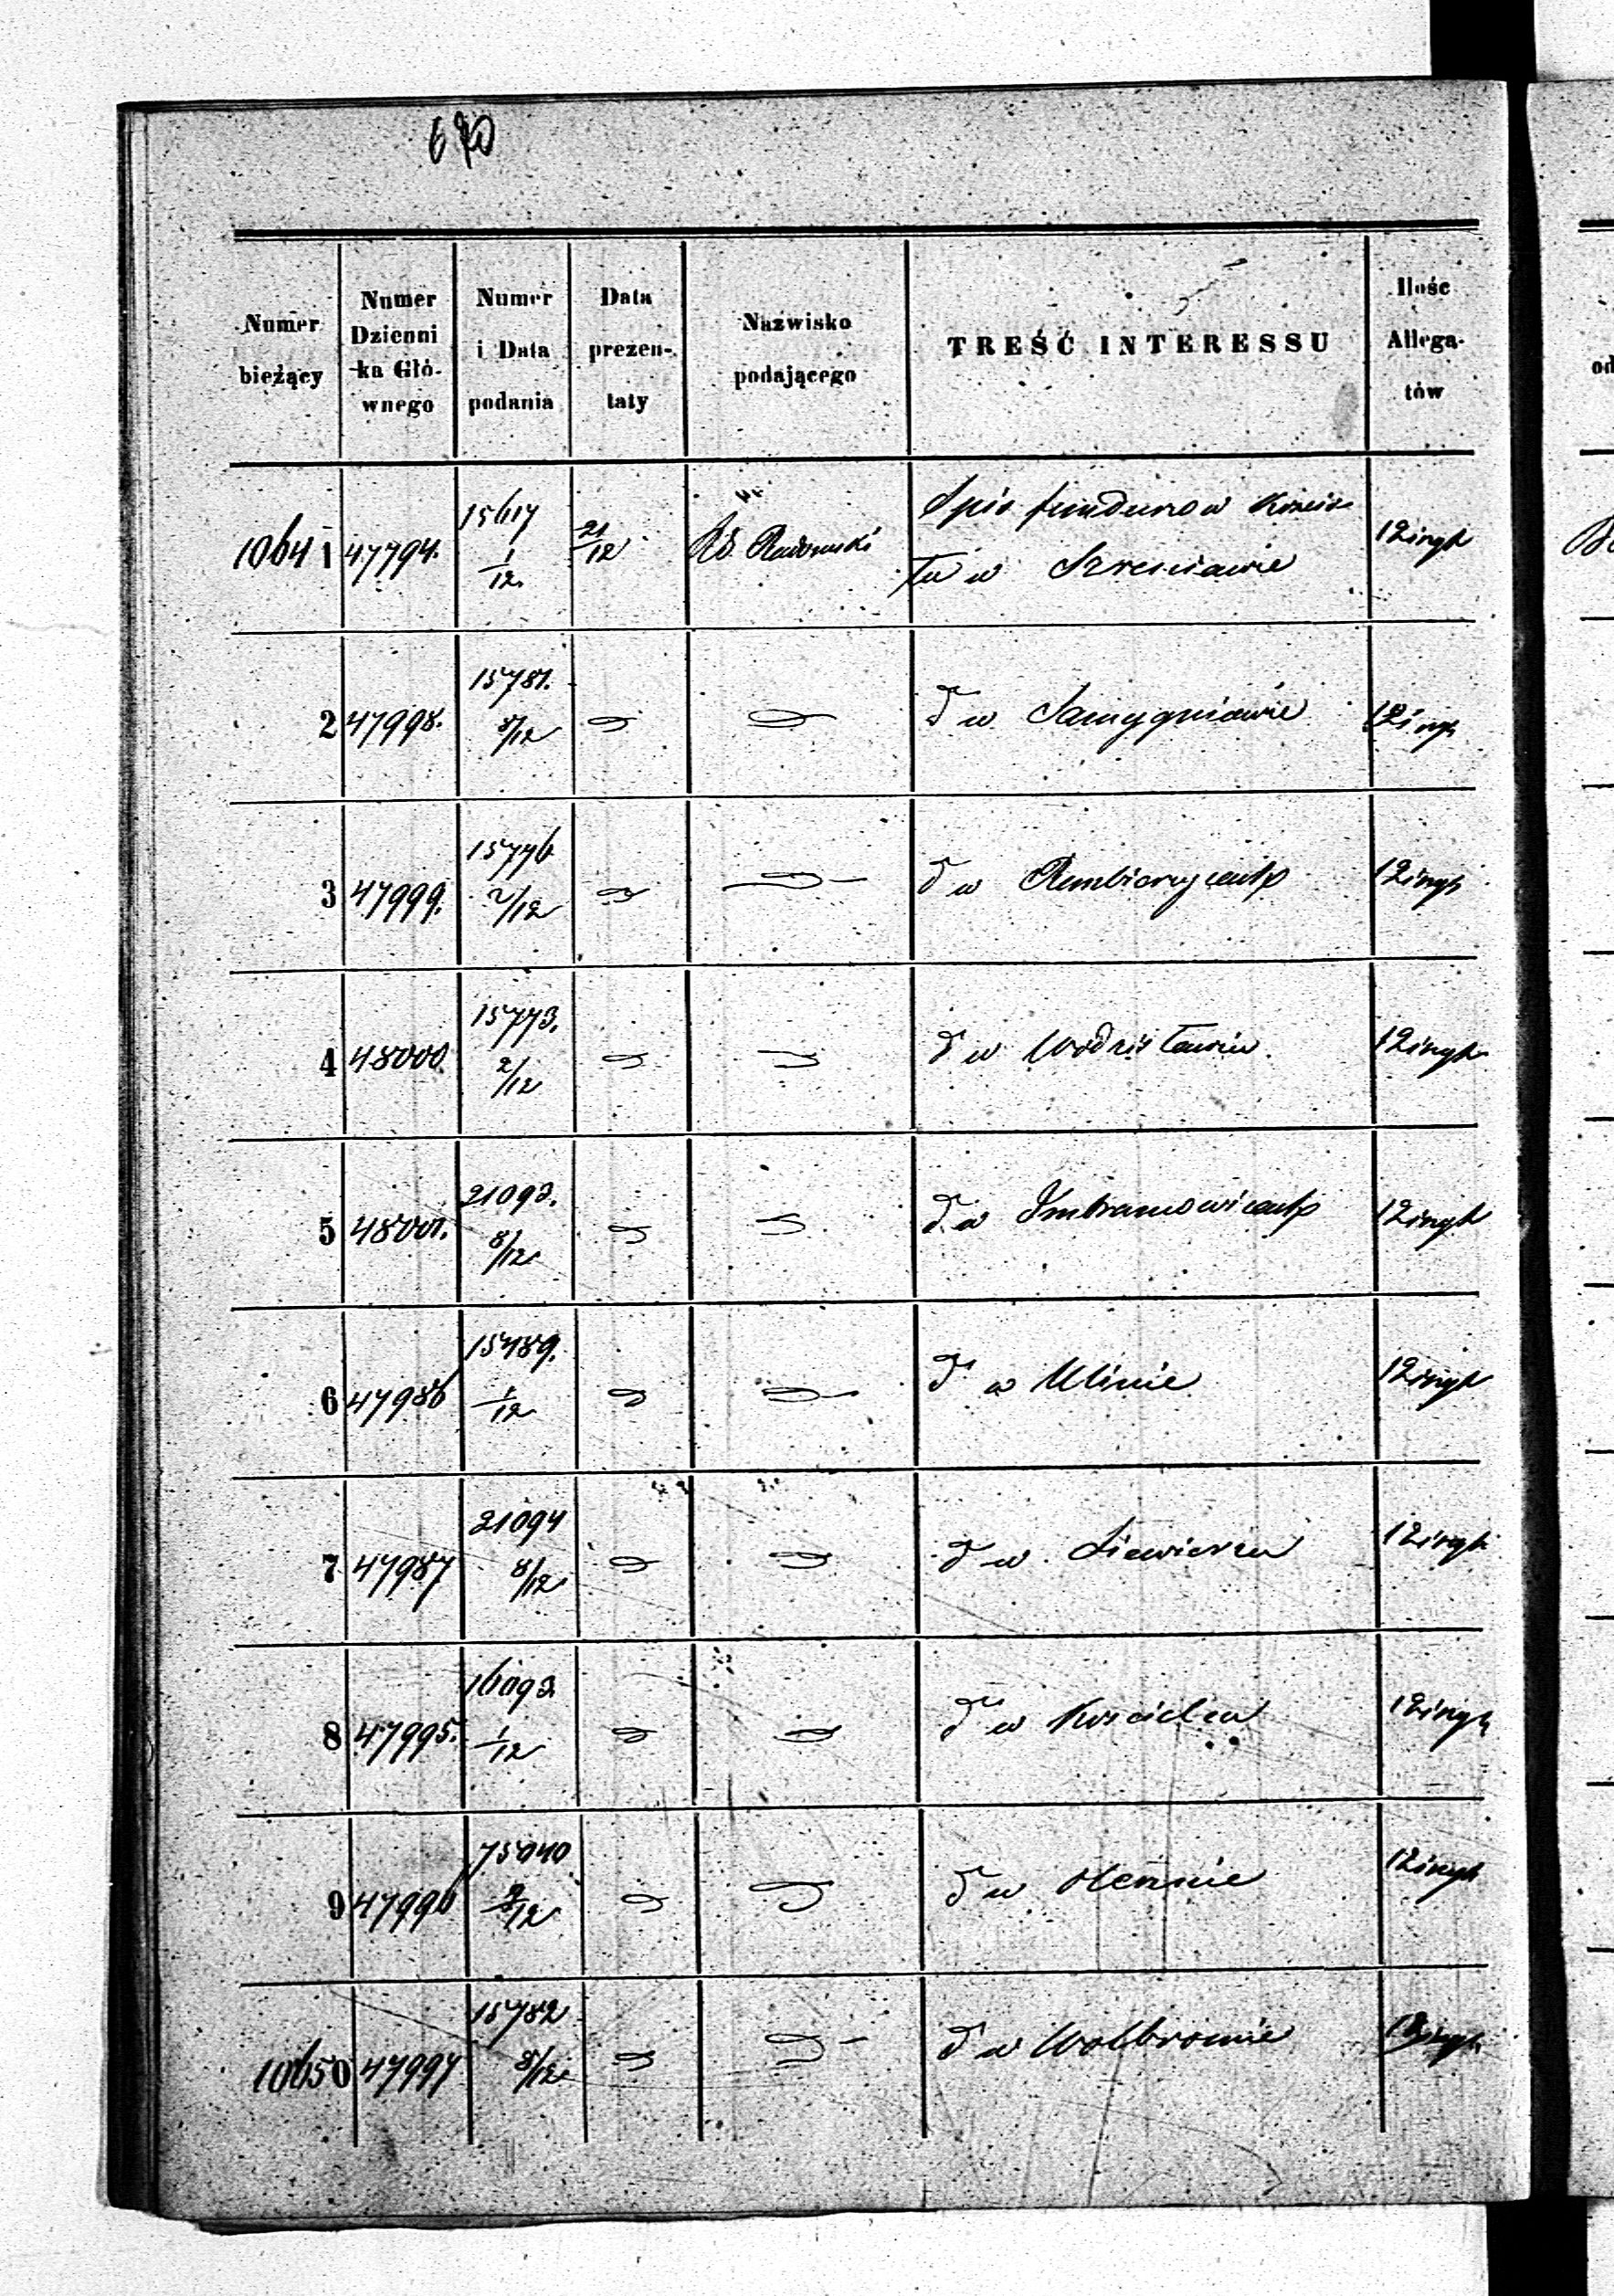 670
Numer bieżący
Numer Dzienni-ka Głó-wnego
Numer i Data podania
Data prezen-taty
Nazwisko podającego
TREŚĆ INTERESSU
Ilość Allega-tów
10641 47794. 15617 1/12. 21/12 Rd. Radomski Spis funduszow kościo-
ła w Szreniawie
2 47998. 15781. 8/12 d° w Sancygniowie
3 47999. 15776 2/12 d° w Rembieszycach
4 48000. 15773. 2/12 d° w Wodzisławiu
5 48001. 21093. 8/12 d° w Imbramowicach
6 47986 15789. 1/12 d° w Ulinie
7 47987 21094 8/12 d° w Siewierzu
8 47995. 16093. 1/12 d° w Koscielcu
9 47996 75040 2/12 d° w
10650 47997 15782 8/12 d° w Wolbromie